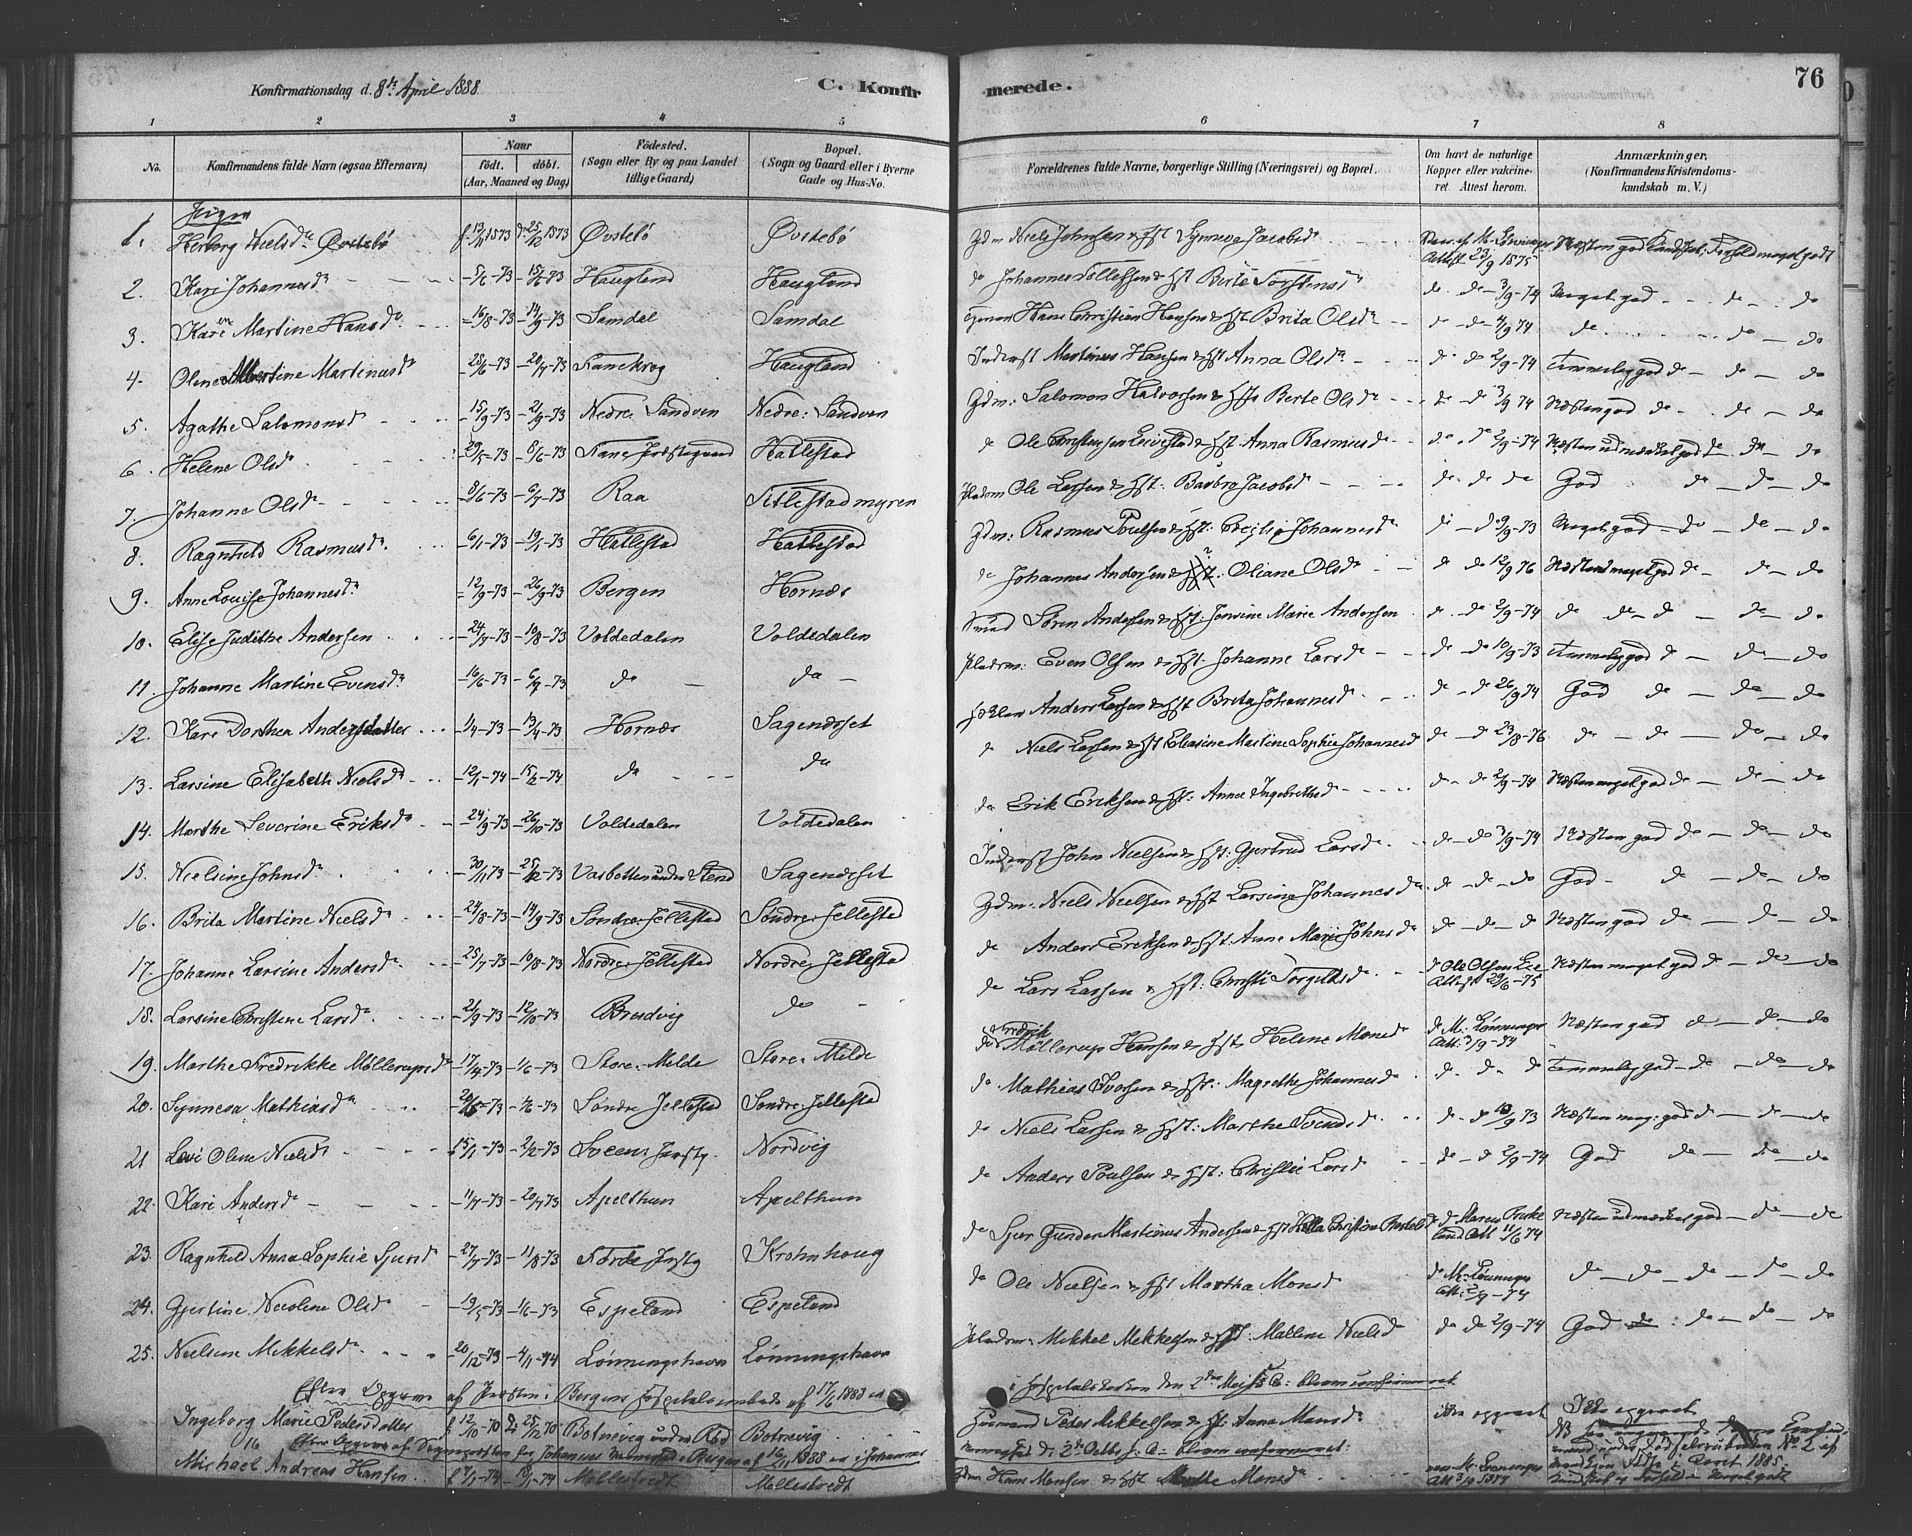 Konfirmationsdag d. 8de April 1888
C. Konfir
merede.
76
1 2 3 4 5 6 7 8
No.
Konfirmandens fulde Navn (ogsaa Efternavn)
Naar
født. døbt.
(Aar, Maaned og Dag)
Fødested.
(Sogn eller By og paa Landet
tillige Gaard.)
Bopæl.
(Sogn og Gaard eller i Byerne
Gade og Hus-No.
Forældrenes fulde Navne, borgerlige Stilling (Næringsvei) og Bopæl.
Om havt de naturlige
Kopper eller vakcine-
ret. Attest herom.
Anmærkninger.
(Konfirmandens Kristendoms-
kundskab m. V.)
Piger
1. Herborg Nielsdr Øvstebø f 13/11 1873 d 25/12 1873 Øvstebø Øvstebø Gdm Niels Johnsen & Hst Synneva Jacobsd Attest 23/9 1875 Næsten god Kundskab, Forhold meget godt
2. Kari Johannesdr 5/6-73 15/6-73 Haugland Haugland do Johannes Tollefsen & Hst Berte Torstensdr do do 3/9-74 Meget god do do
3. Karen Martine Hansdr 16/8-73 14/9-73 Samdal Samdal Hans Christian Hansen & Hst Brita Olsdr do do 4/9 74 do do do
4. Oline Albertine Martinusdr 25/6-73 20/7-73 Kanekrog Haugland Inderst Martinus Hansen & Hst Anna Olsdr do do 2/9-74 Temmelig god do do do
5. Agathe Salomonsd 15/9-73 21/9-73 Nedre Sandven Nedre Sandven Gdm: Salomon Halvorsen & Hst Berte Olsdr do do 3/9 74 Næsten god do do do
6. Helene Olsdr 29/5-73 8/6-73 Fane Præstegaard Hatlestad do Ole Christensen Leivestad & Hst Anna Rasmusdr do do 2/9-74 Næsten udmærket god do do do
7. Johanne Olsdr 8/6-73 6/7-73 Raa Titlestadmyren Pladsm Ole Larsen & Hst: Barbra Jacobsd do do do God do do do
8. Ragnhild Rasmusdr 6/1-73 19/1-73 Hatlestad Hatlestad Gdm: Rasmus Poulsen & Hst: Cecilie Johannesdr do do 9/9-73 Meget god do do do
9. Anne Louise Johannesdr 12/9-73 26/9-73 Bergen Hornæs do Johannes Andersen & Hst: Oliane Olsdr do do 12/9 76 Næsten meget god do do do
10. Elise Judithe Andersen 24/7-73 10/8-73 Voldedalen Voldedalen Smed Søren Andersen & Hst: Jensine Marie Andersen do do 2/9-74 do do do do do
11. Johanne Martine Evensdr 16/6-73 6/7-73 do do Pladsm: Even Olsen & Hst: Johanne Larsdr do do 10/9-73 Temmelig god do do do
12. Kari Dorthea Andersdatter 1/4-73 13/4-73 Hornæs Sagendeset Anders Larsen & Hst Brita Johannesdr do do 26/9 74 God do do do
13. Larsine Elisabeth Nielsdr 12/1-74 15/2-74 do do do Niels Larsen & Hst Elleasine Martine Sophie Johannesd do do 23/8-76 do do do do
14. Marthe Severine Eriksdr 24/9-73 26/10-73 Voldedalen Voldedalen do Erik Eriksen & Hst: Anna Ingebrethsd do do 2/9-74 Næsten meget god do do do
15. Nielsine Johnsdr 30/11-73 25/12-73 Vasbotten under Stend Sagendeset Inderst John Nielsen & Hst: Gjertrud Larsdr do do 3/9-74 Næsten god do do do
16. Brita Martine Nielsdr 24/8-73 14/9-73 Søndre Jellestad Søndre Jellestad Gdm: Niels Nielsen & Hst Larsine Johannesdr do do do God do do do
17. Johanne Larsine Andersdr 25/7-73 10/8-73 Nordre Jellestad Nordre Jellestad do Anders Eriksen & Hst: Anne Marie Johnsdr do do do Næsten god do do do
18. Larsine Christene Larsdr 21/9-73 12/10-73 Bredvig do do Lars Larsen & Hst: Christi Torgilsdr do Ole Olsen Lie Attest 29/6-75 Næsten meget god do do do
19. Marthe Fredrikke Møllerupsdr 17/4-73 1/6-73 Store Milde Store Milde do Fredrik Møllerup Hansen & Hst Helene Monsdr do M: Lønninger Att: 3/9-74 Næsten god do do do
20. Synneva Mathiasdr 20/5-73 1/6-73 Søndre Jellestad Søndre Jellestad do Mathias Iversen & Hst: Magrethe Johannesdr do do do Temmelig god do do do
21 Lovi Oline Nielsdr 15/1-73 2/2-73 Sveens Præstg. Nordvig do Niels Larsen & Hst: Marthe Svendsdr do do 10/9 73 Næsten meg: god do do do
22. Kari Andersdr 11/7-73 20/7 73 Apelthun Apelthun do Anders Poulsen & Hst: Christie Larsdr do do 2/9-74 God do do do
23. Ragnhild Anna Sophie Sjursd 27/7-73 11/8-73 Førde Præstg Krohnhoug do Sjur Gunder Martinus Andersen & Hst Christine do 11/6 74 Næsten udmærket god do do
24. Gjertine Nicoline Olsdr 19/5-73 1/6-73 Espeland Espeland do Ole Nielsen & Hst Martha Monsdr do M: Lønninger Att: 2/9-74 do do do do do
25. Nielsine Mikkelsdr 20/12-73 4/1-74 Lønningshavn Lønningshavn Pladsm: Mikkel Mikkelsen & Hst: Mallene Nielsdr do do 2/9-74 God do do do
Efter Opgave af Præsten i Bergens Hospitalsmenighed af 17/6 1888 er i Hospitalskirken den 2den Mai s. A. bleven confirmeret
Ingeborg Marie Pedersdatter f 12/10-70 d 25/12 70 Botnevig under Rød Botnevig Husmand Peder Mikkelsen & Hst: Anna Monsdr ikke opgivet Ikke opgivet
Efter Opgave af Sognepræsten for Johannes Menighed i Bergen af 16/11 1888 er i Johannes Menighed d: 2de Octb. s. A. bleven confirmeret:
Michael Andreas Hansen f 4/1-74 18/1-74 Mellestvedt Mellestvedt Gdm Hans Monsen & Hst Marthe Monsdr vac. M. Lønninger Att 3/9 1874 Kundskab og Forhold Meget godt